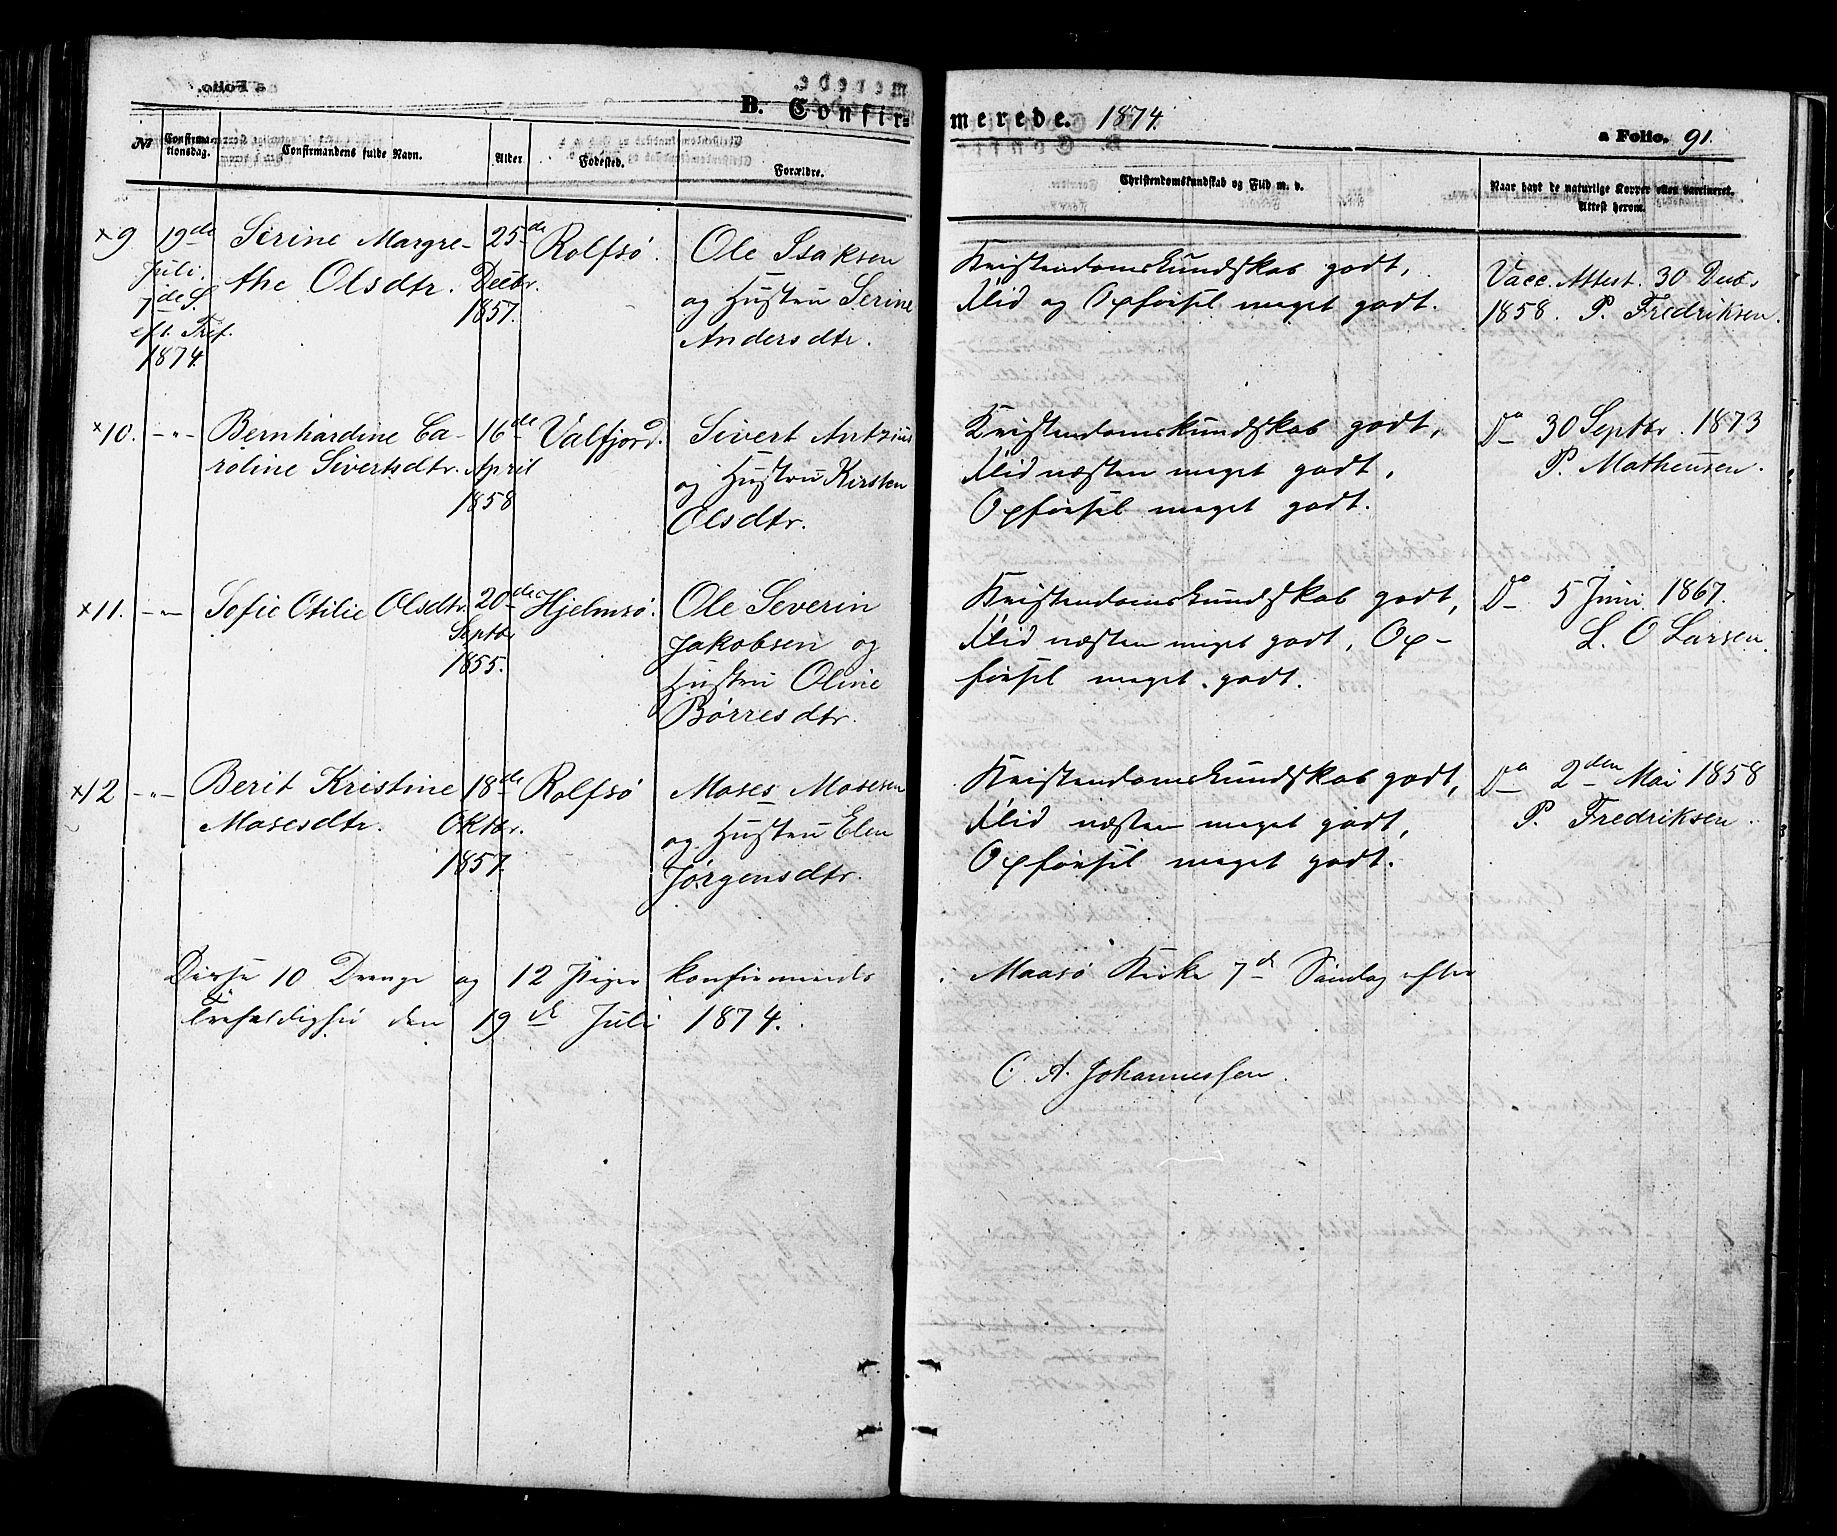 B. Confir=
merede. 1874.
a Folio. 91.
No
Confirma-
tionsdag.
Confirmandens fulde Navn.
Alder
Fødested.
Forældre.
Christendomskundskab og Flid m. v.
Naar havt de naturlige Kopper eller vaccineret.
Attest herom.
×9
19de
Juli.
7de S.
eft. Tref.
1874.
Serine Margre-
the Olsdtr.
25de
Decbr.
1857.
Rolfsö.
Ole Isaksen
og Hustru Serine
Andersdtr.
Kristendomskundskab godt,
Flid og Opførsel meget godt.
Vacc. Attest. 30 Decb.
1858. P. Fredriksen.
×10.
-"-
Bernhardine Ca-
roline Sivertsdtr.
16de
April
1858
Valfjord.
Sivert
og Hustru Kirsten
Olsdtr.
Kristendomskundskab godt,
Flid næsten meget godt,
Opførsel meget godt.
Do 30 Septbr. 1873
P. Matheusen.
×11.
-"-
Sofie Otilie Olsdtr.
20de
Septbr.
1855.
Hjelmsö.
Ole Severin
Jakobsen og
Hustru Oline
Börresdtr.
Kristendomskundskab godt,
Flid næsten meget godt, Op-
førsel meget godt.
Do 5 Juni 1867.
L. O Larsen.
×12
-"-
Berit Kristine
Mosesdtr.
18de
Oktbr.
1857.
Rolfsö
Moses Mosesen
og Hustru Elen
Jörgensdtr.
Kristendomskundskab godt,
Flid næsten meget godt,
Opførsel meget godt.
Do 2den Mai 1858
P. Fredriksen.
Disse 10 Drenge og 12 Piger konfirmeredes i Maasö Kirke 7de Søndag efter
Trefoldighed den 19de Juli 1874.
C. A. Johannessen.